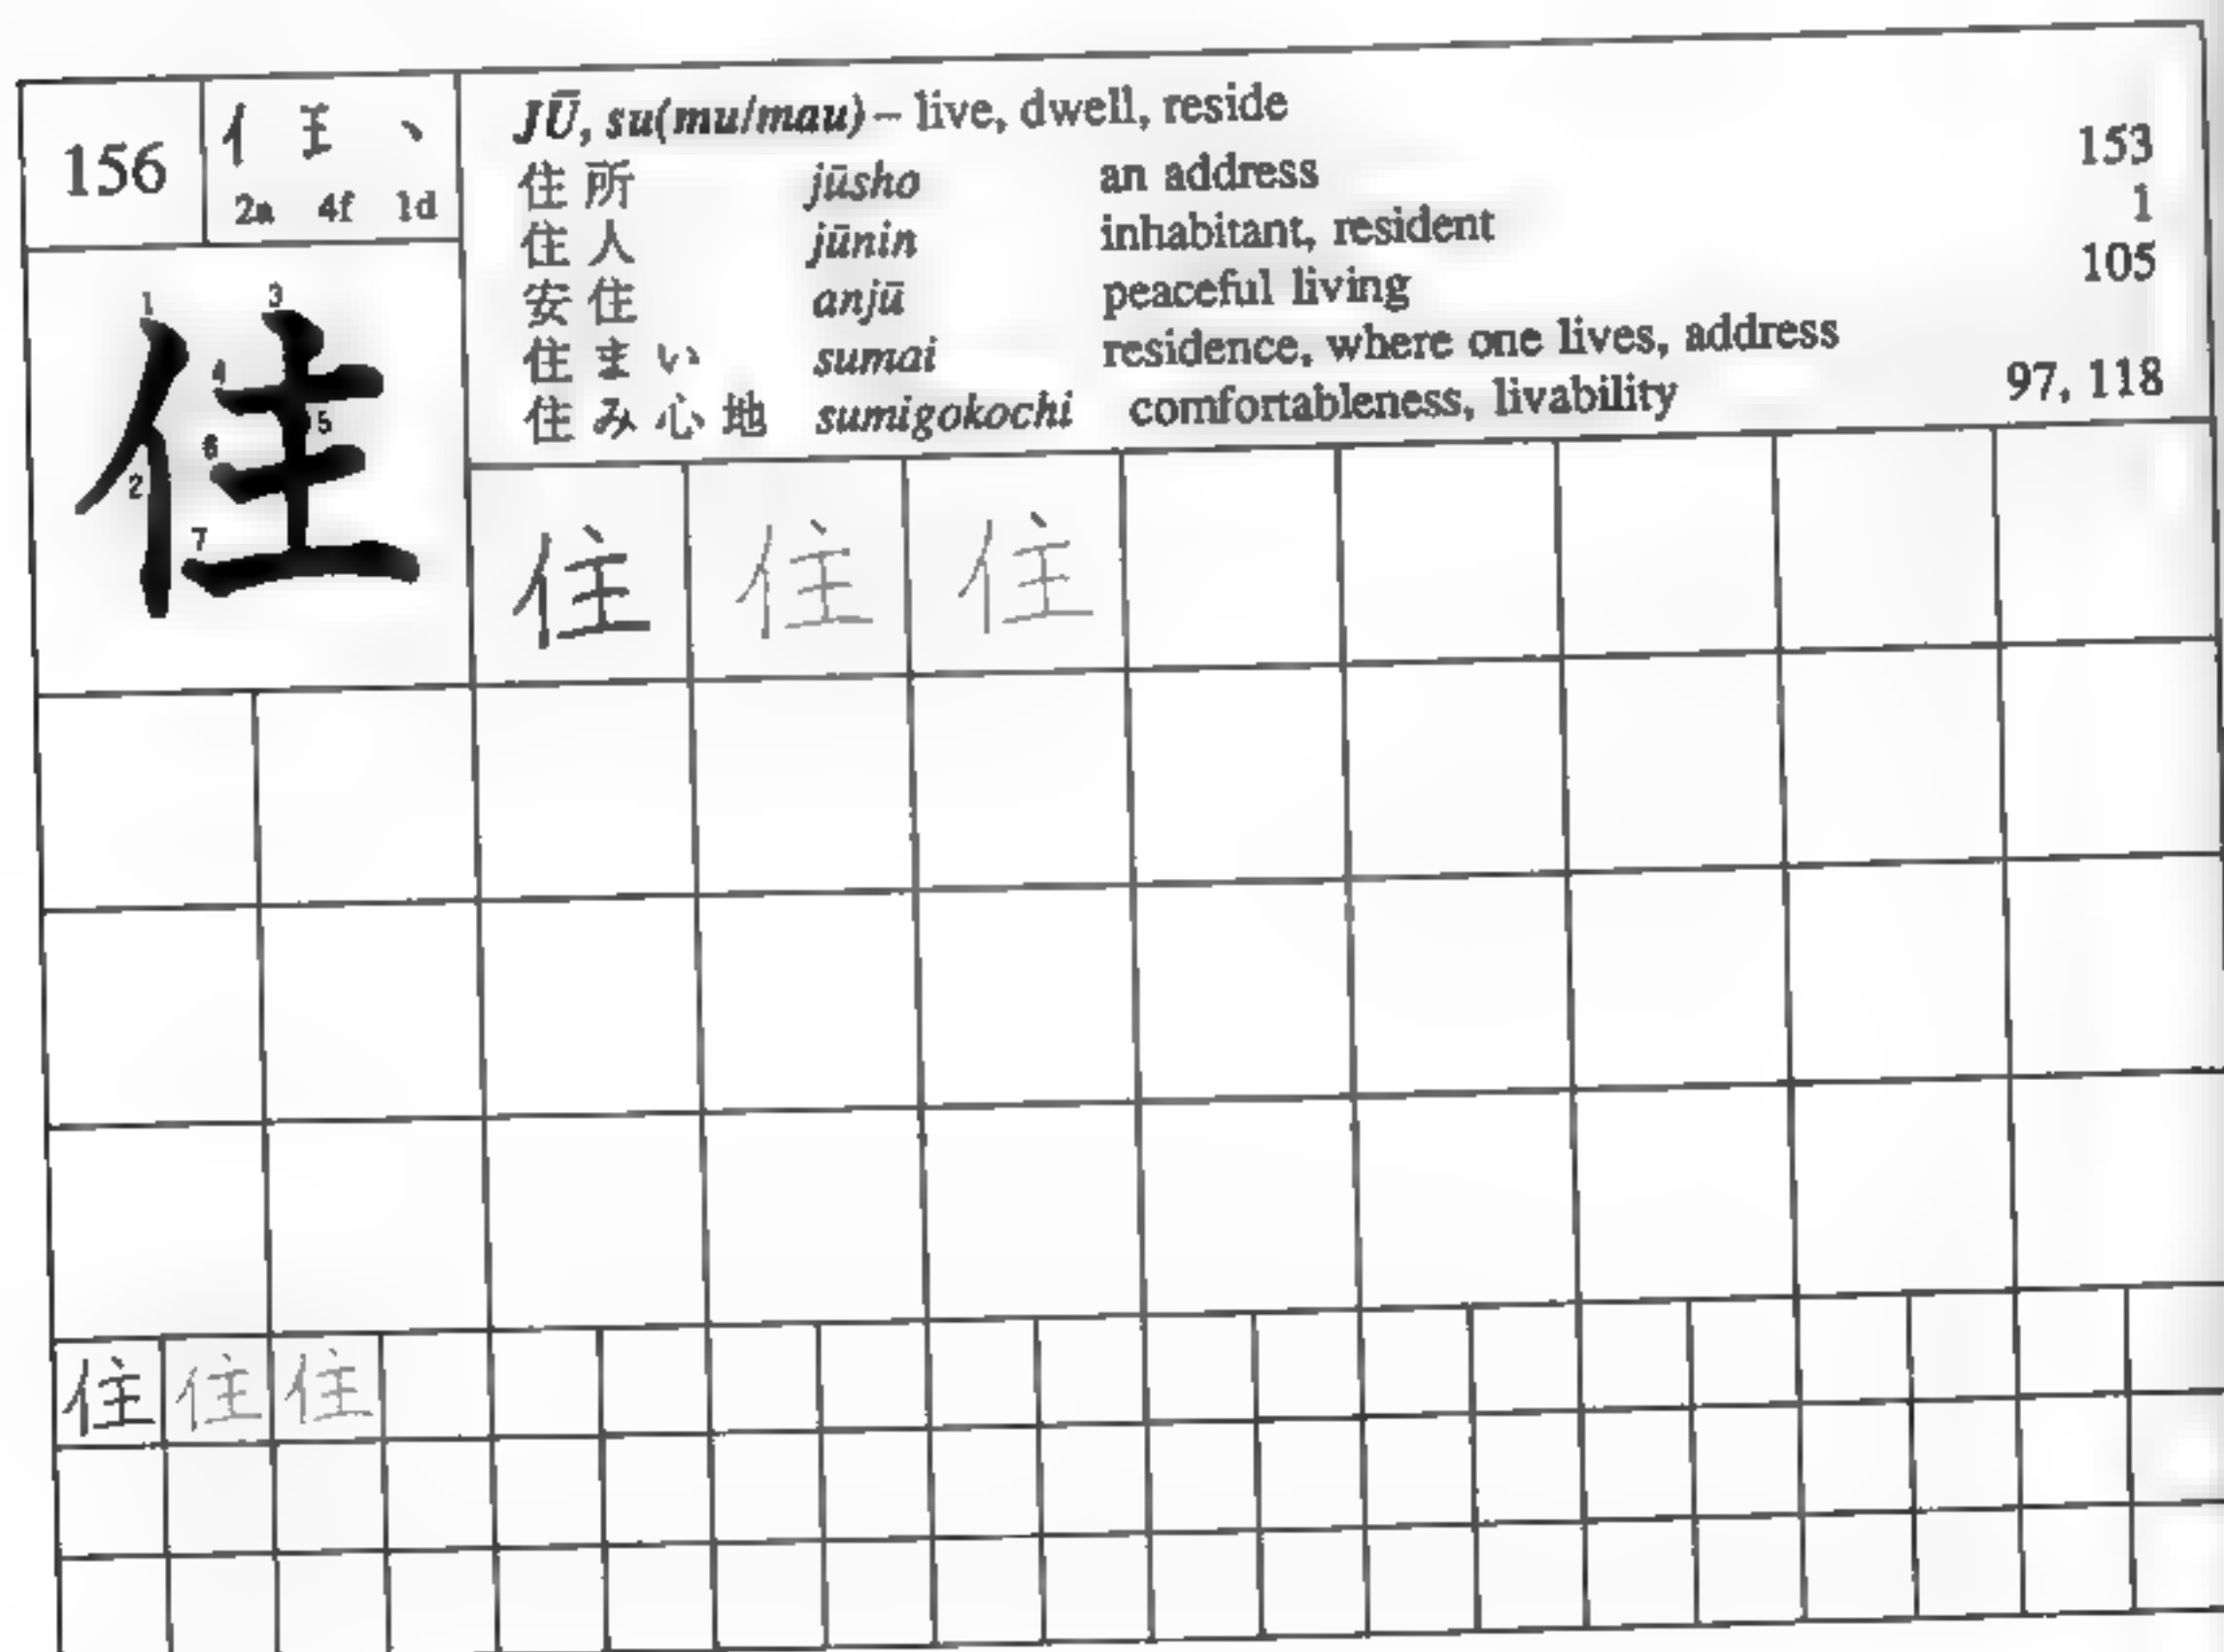 156
亻 𤣩 丶
2a 4f 1d
JŪ, su(mu/mau) – live, dwell, reside
住所 jūsho an address 153
住人 jūnin inhabitant, resident 1
安住 anjū peaceful living 105
住まい sumai residence, where one lives, address
住み心地 sumigokochi comfortableness, livability 97, 118
1 3
4
5
6
2
7
住
住 住 住
住 住 住